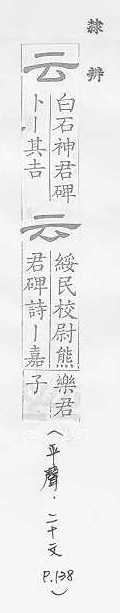 隸辨
云
白石神君碑
卜丨其吉
云
綏民校尉熊
君碑詩丨嘉
樂君
子
（平聲·二十文
P.138）